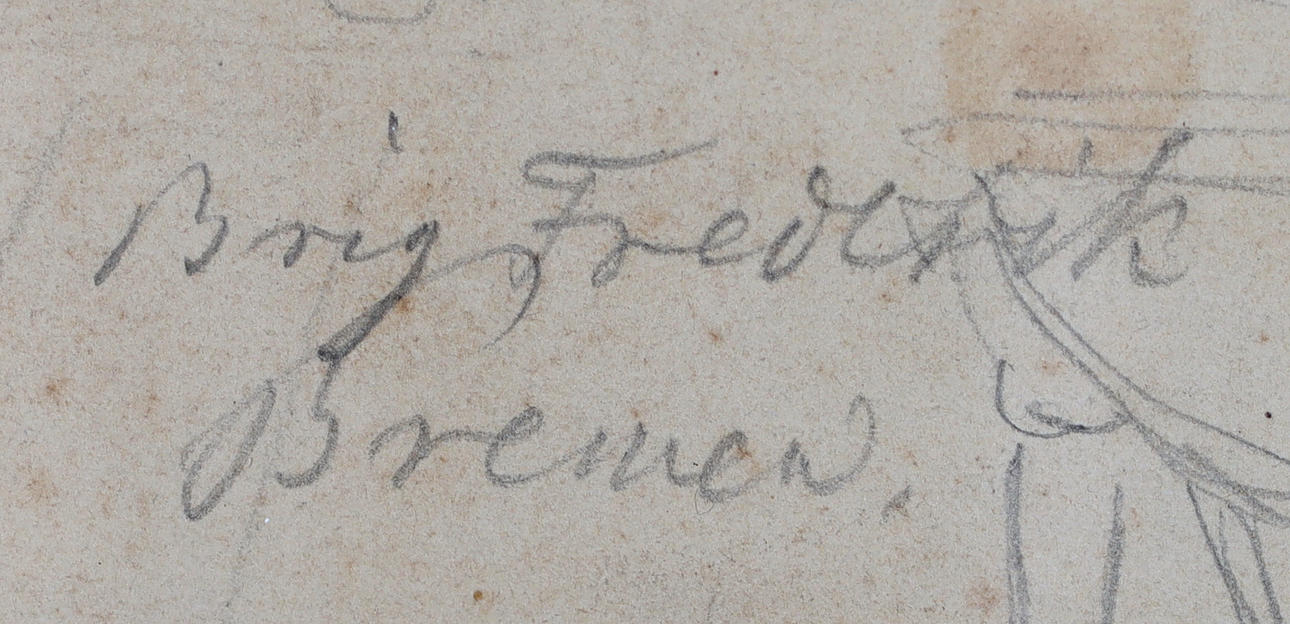 Brig Frederik
Bremen.